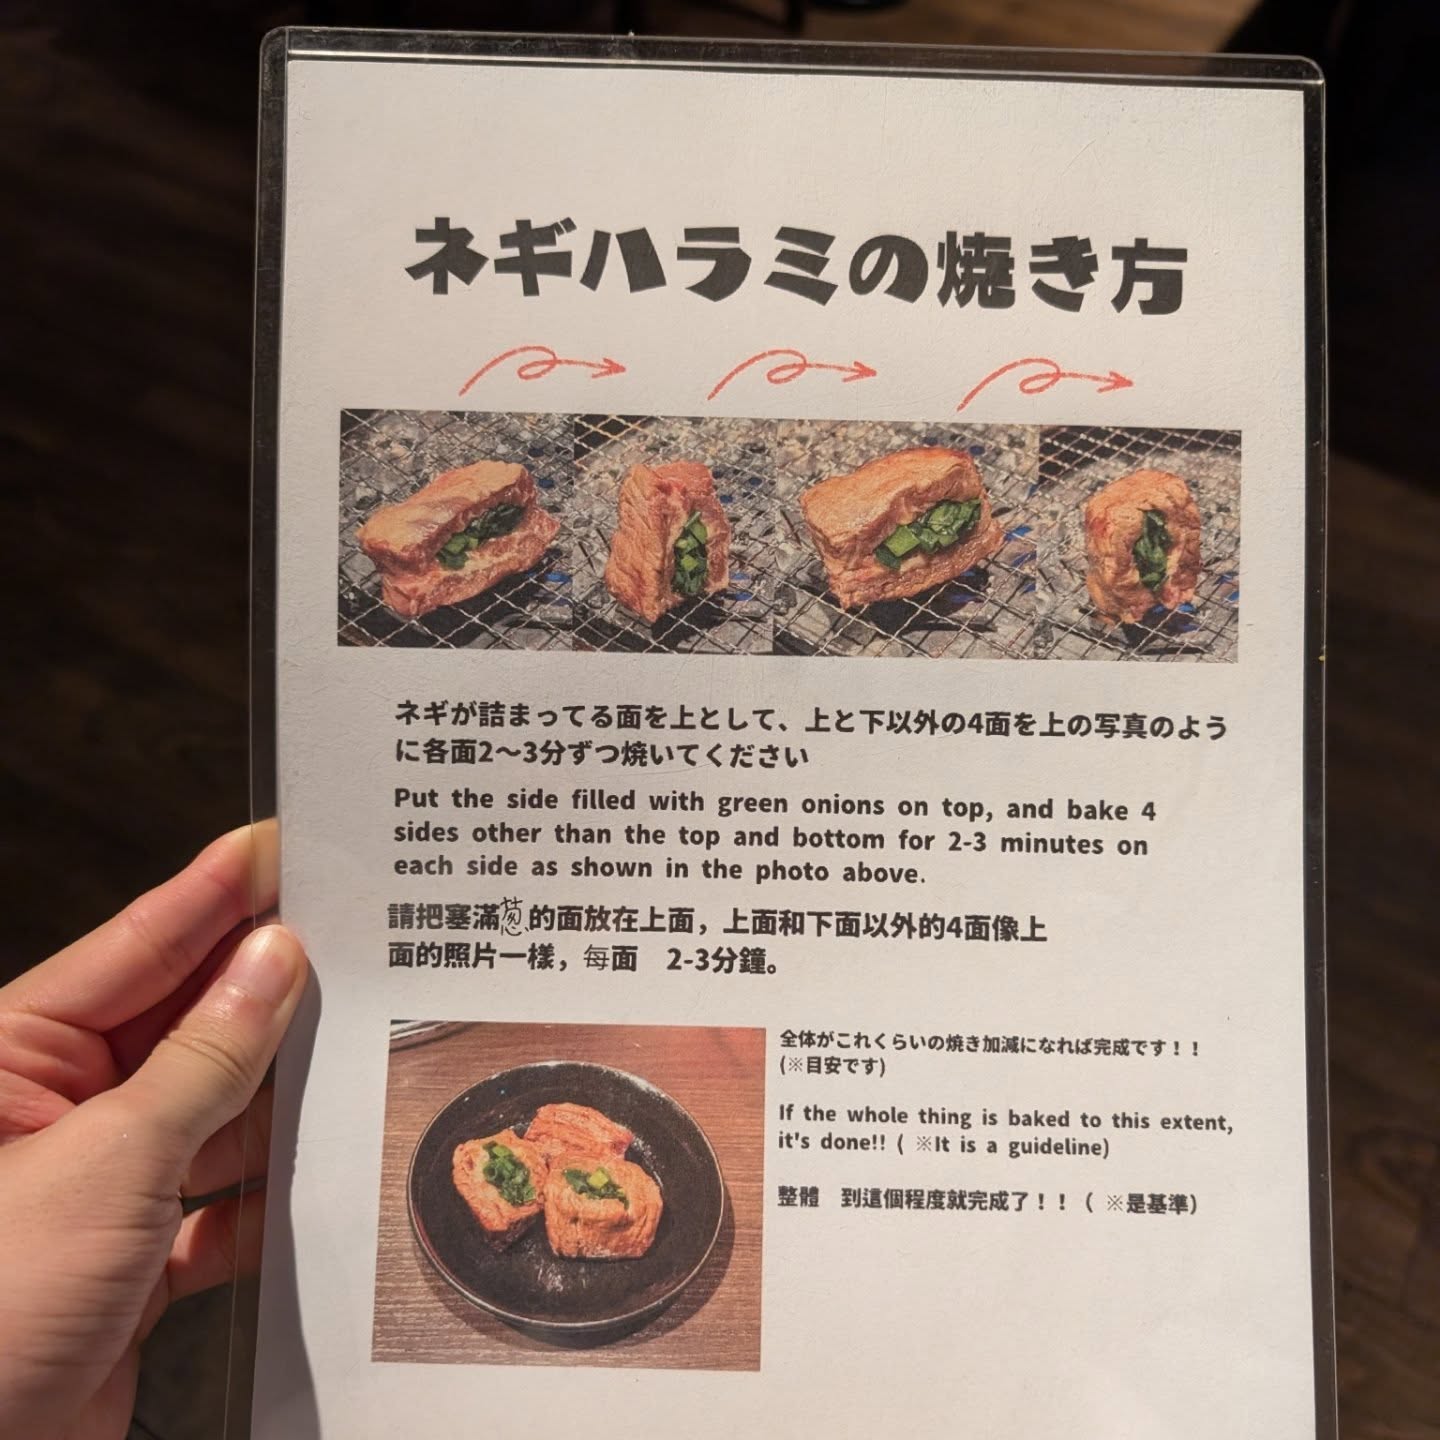 ネギハラミの焼き方
ネギが詰まってる面を上として、上と下以外の4面を上の写真のよう
に各面2〜3分ずつ焼いてください
Put the side filled with green onions on top, and bake 4
sides other than the top and bottom for 2-3 minutes on
each side as shown in the photo above.
請把塞滿葱的面放在上面，上面和下面以外的4面像上
面的照片一樣，每面　2-3分鐘。
全体がこれくらいの焼き加減になれば完成です！！
(※目安です)
If the whole thing is baked to this extent,
it's done!! ( ※It is a guideline)
整體　到這個程度就完成了！！（ ※是基準）